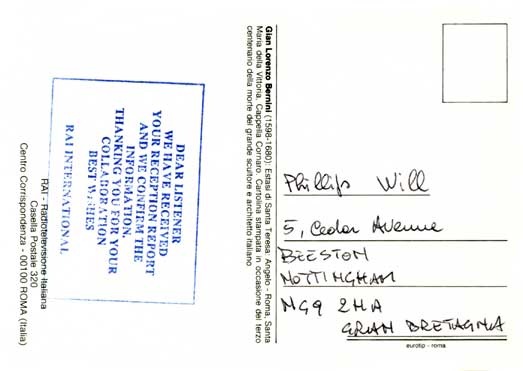 DEAR LISTENER
WE HAVE RECEIVED
YOUR RECEPTION REPORT
AND WE CONFIRM THE
INFORMATION.
THANKING YOU FOR YOUR
COLLABORATION
BEST WISHES
RAI INTERNATIONAL
RAI - Radiotelevisione Italiana
Casella Postale 320
Centro Corrispondenza - 00100 ROMA (Italia)
Gian Lorenzo Bernini (1598-1680): Estasi di Santa Teresa. Angelo - Roma, Santa
Maria della Vittoria, Cappella Cornaro. Cartolina stampata in occasione del terzo
centenario della morte del grande scultore e architetto italiano
Phillip Will
5, Cedar Avenue
BEESTON
NOTTINGHAM
NG9 2HA
GRAN BRETAGNA
eurotip - roma